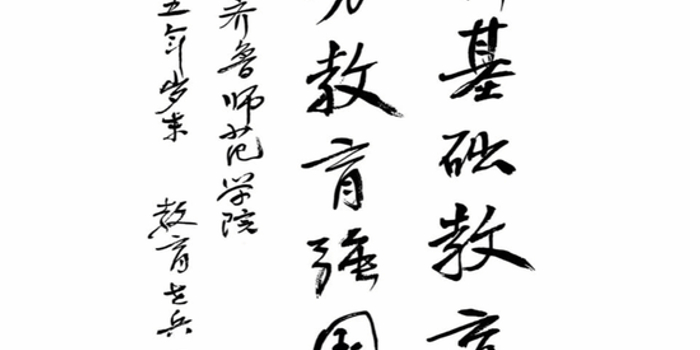 基础教育
教育强国
齐鲁师范学院
五年岁末 教育老兵